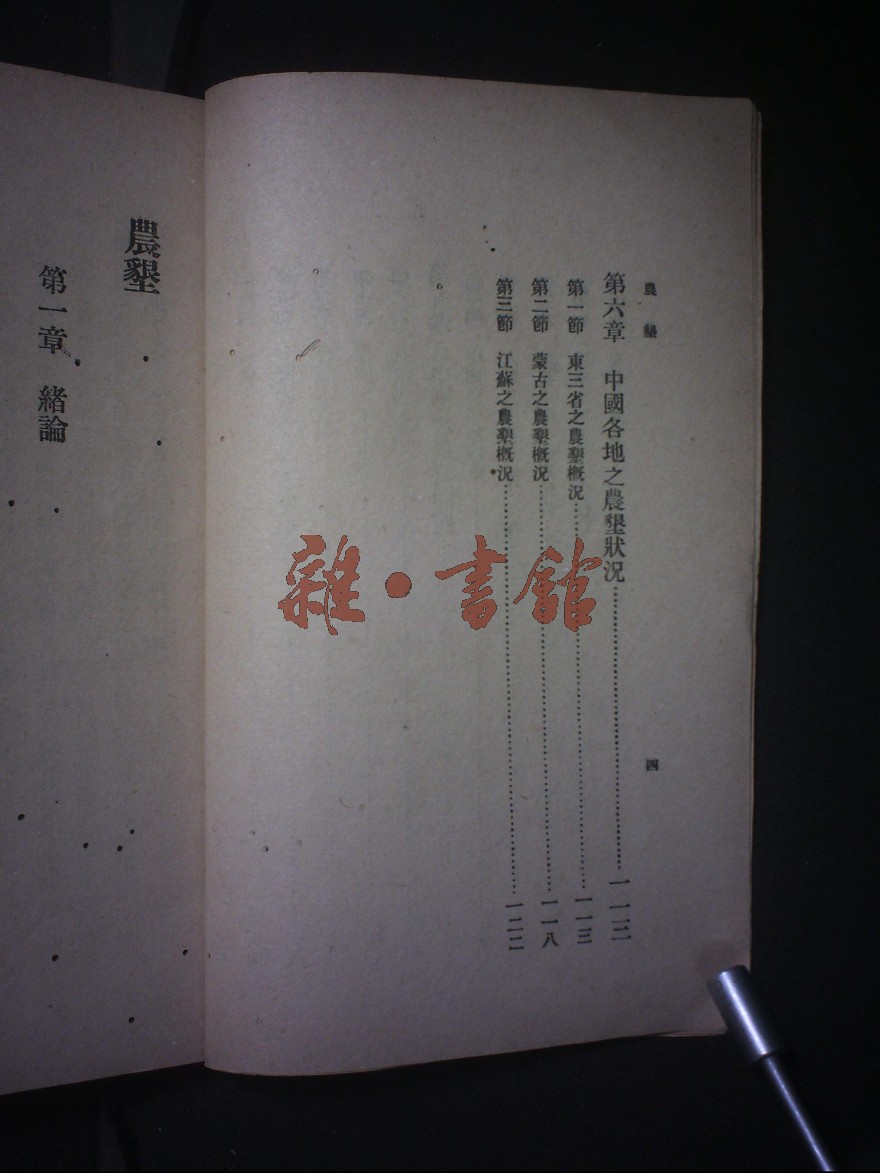 農墾
四
第六章 中國各地之農墾狀況……一一二
第一節 東三省之農墾概況……一一三
第二節 蒙古之農墾概況……一一八
第三節 江蘇之農墾概況……一二二
雜•書館
農墾
第一章 緒論